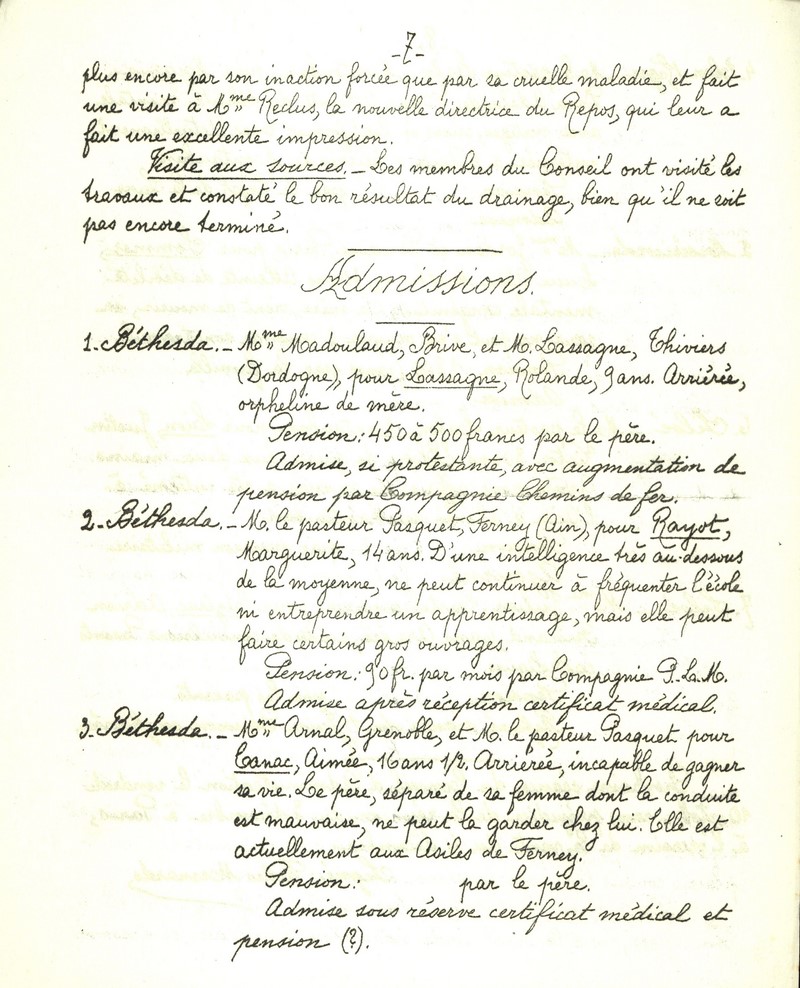 -7-
plus encore par son inaction forcée que par sa cruelle maladie, et fait
une visite à Mme Reclus, la nouvelle directrice du Repos, qui leur a
fait une excellente impression.
Visite aux sources. - Les membres du Conseil ont visité les
travaux et constaté le bon résultat du drainage, bien qu'il ne soit
pas encore terminé.
Admissions.
1. Béthesda. - Mme Madoulaud, Brive, et M. Lassagne, Thiviers
(Dordogne), pour Lassagne, Rolande, 9 ans. Arriérée,
orpheline de mère.
Pension : 450 à 500 francs par le père.
Admise, si protestante, avec augmentation de
pension par Compagnie Chemins de fer.
2. Béthesda. - M. le pasteur Pasquet, Ferney (Ain), pour Rayot,
Marguerite, 14 ans. D'une intelligence très au-dessous
de la moyenne, ne peut continuer à fréquenter l'école
ni entreprendre un apprentissage, mais elle peut
faire certains gros ouvrages.
Pension : 90 fr. par mois par Compagnie P.-L.-M.
Admise après réception certificat médical.
3. Béthesda. - Mme Arnal, Grenoble, et M. le pasteur Pasquet pour
Canac, Aimée, 16 ans 1/2. Arrierée, incapable de gagner
sa vie. Le père, séparé de sa femme dont la conduite
est mauvaise, ne peut la garder chez lui. Elle est
actuellement aux Asiles de Ferney.
Pension : par le père.
Admise sous réserve certificat médical et
pension (?).